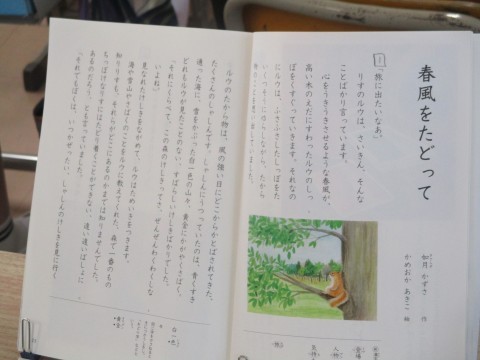 春風をたどって
如月 かずさ 作
かめおか あきこ 絵
「旅に出たいなあ。」
りすのルウは、さいきん、そんな
ことばかり言っています。
心をうきうきさせるような春風が、
高い木のえだにすわったルウのしっ
ぽをくすぐっていきます。それなの
にルウは、ふさふさしたしっぽを
ルウのたから物は、風の強い日にどこからかとばされてきた、
たくさんのしゃしんです。しゃしんにうつっていたのは、青くすき
通った海に、雪をかぶった白一色の山々、黄金にかがやくさばく。
どれもルウが見たことのない、すばらしいけしきばかりでした。
「それにくらべて、この森のけしきってさ、ぜんぜんわくわくしな
いよね。」
見なれたけしきをながめて、ルウはためいきをつきます。
海や雪山やさばくのことをルウに教えてくれた、森で一番のもの
知りりすも、それらがどこにあるのかまでは知りませんでした。
ちっぽけなりすにはたどり着くことができない、遠い遠いばしょに
あるのだろう、とも言っていました。
「それでもぼくは、いつかぜったい、しゃしんのけしきを見に行く
白一色
黄金